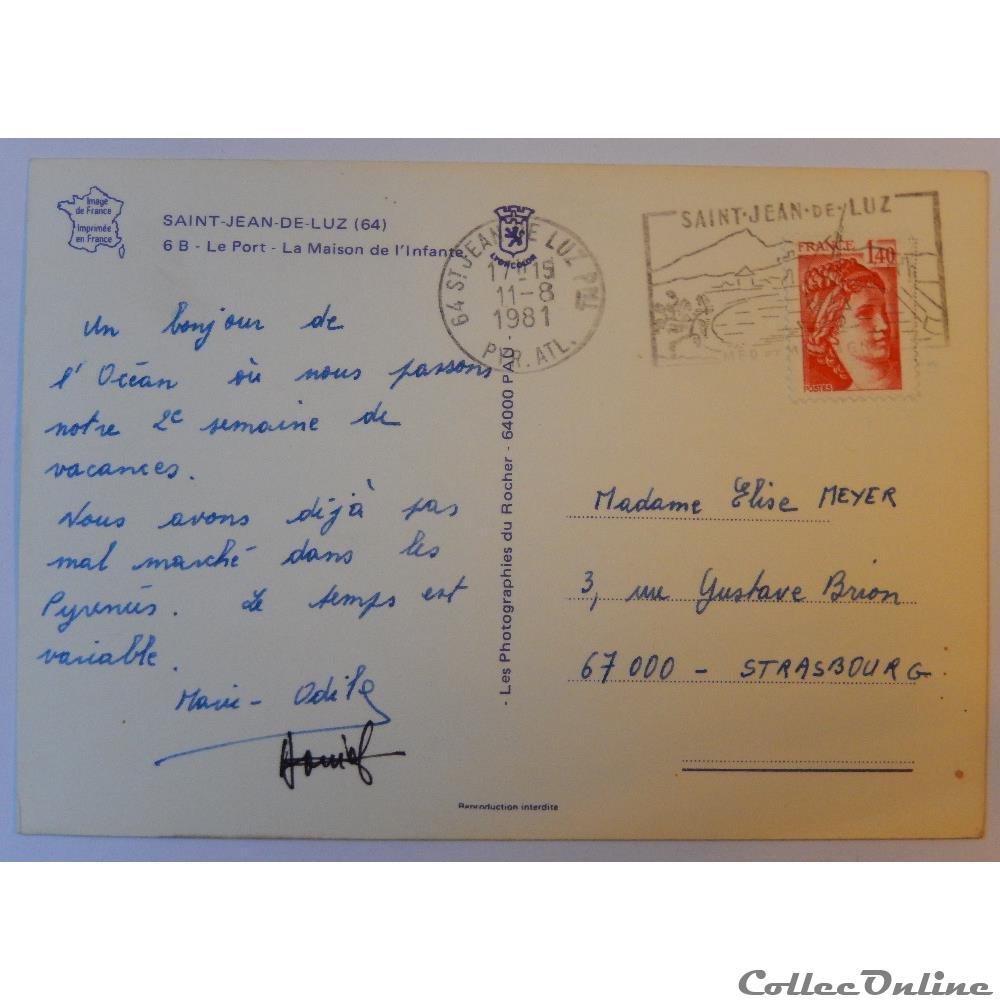 Image
de France
Imprimée
en France
SAINT-JEAN-DE-LUZ (64)
6 B - Le Port - La Maison de l'Infante
LYONCOLOR
64 ST JEAN DE LUZ PAL
17H15
11-8
1981
PYR. ATL.
SAINT·JEAN·DE·LUZ
FRANCE 1,40
POSTES
Un bonjour de
l'Océan où nous passons
notre 2e semaine de
vacances.
Nous avons déjà pas
mal marché dans les
Pyrenées. Le temps est
variable.
Marie-Odile
- Les Photographies du Rocher - 64000 PAU -
Madame Elise MEYER
3, rue Gustave Brion
67 000 - STRASBOURG
Reproduction interdite
CollecOnline